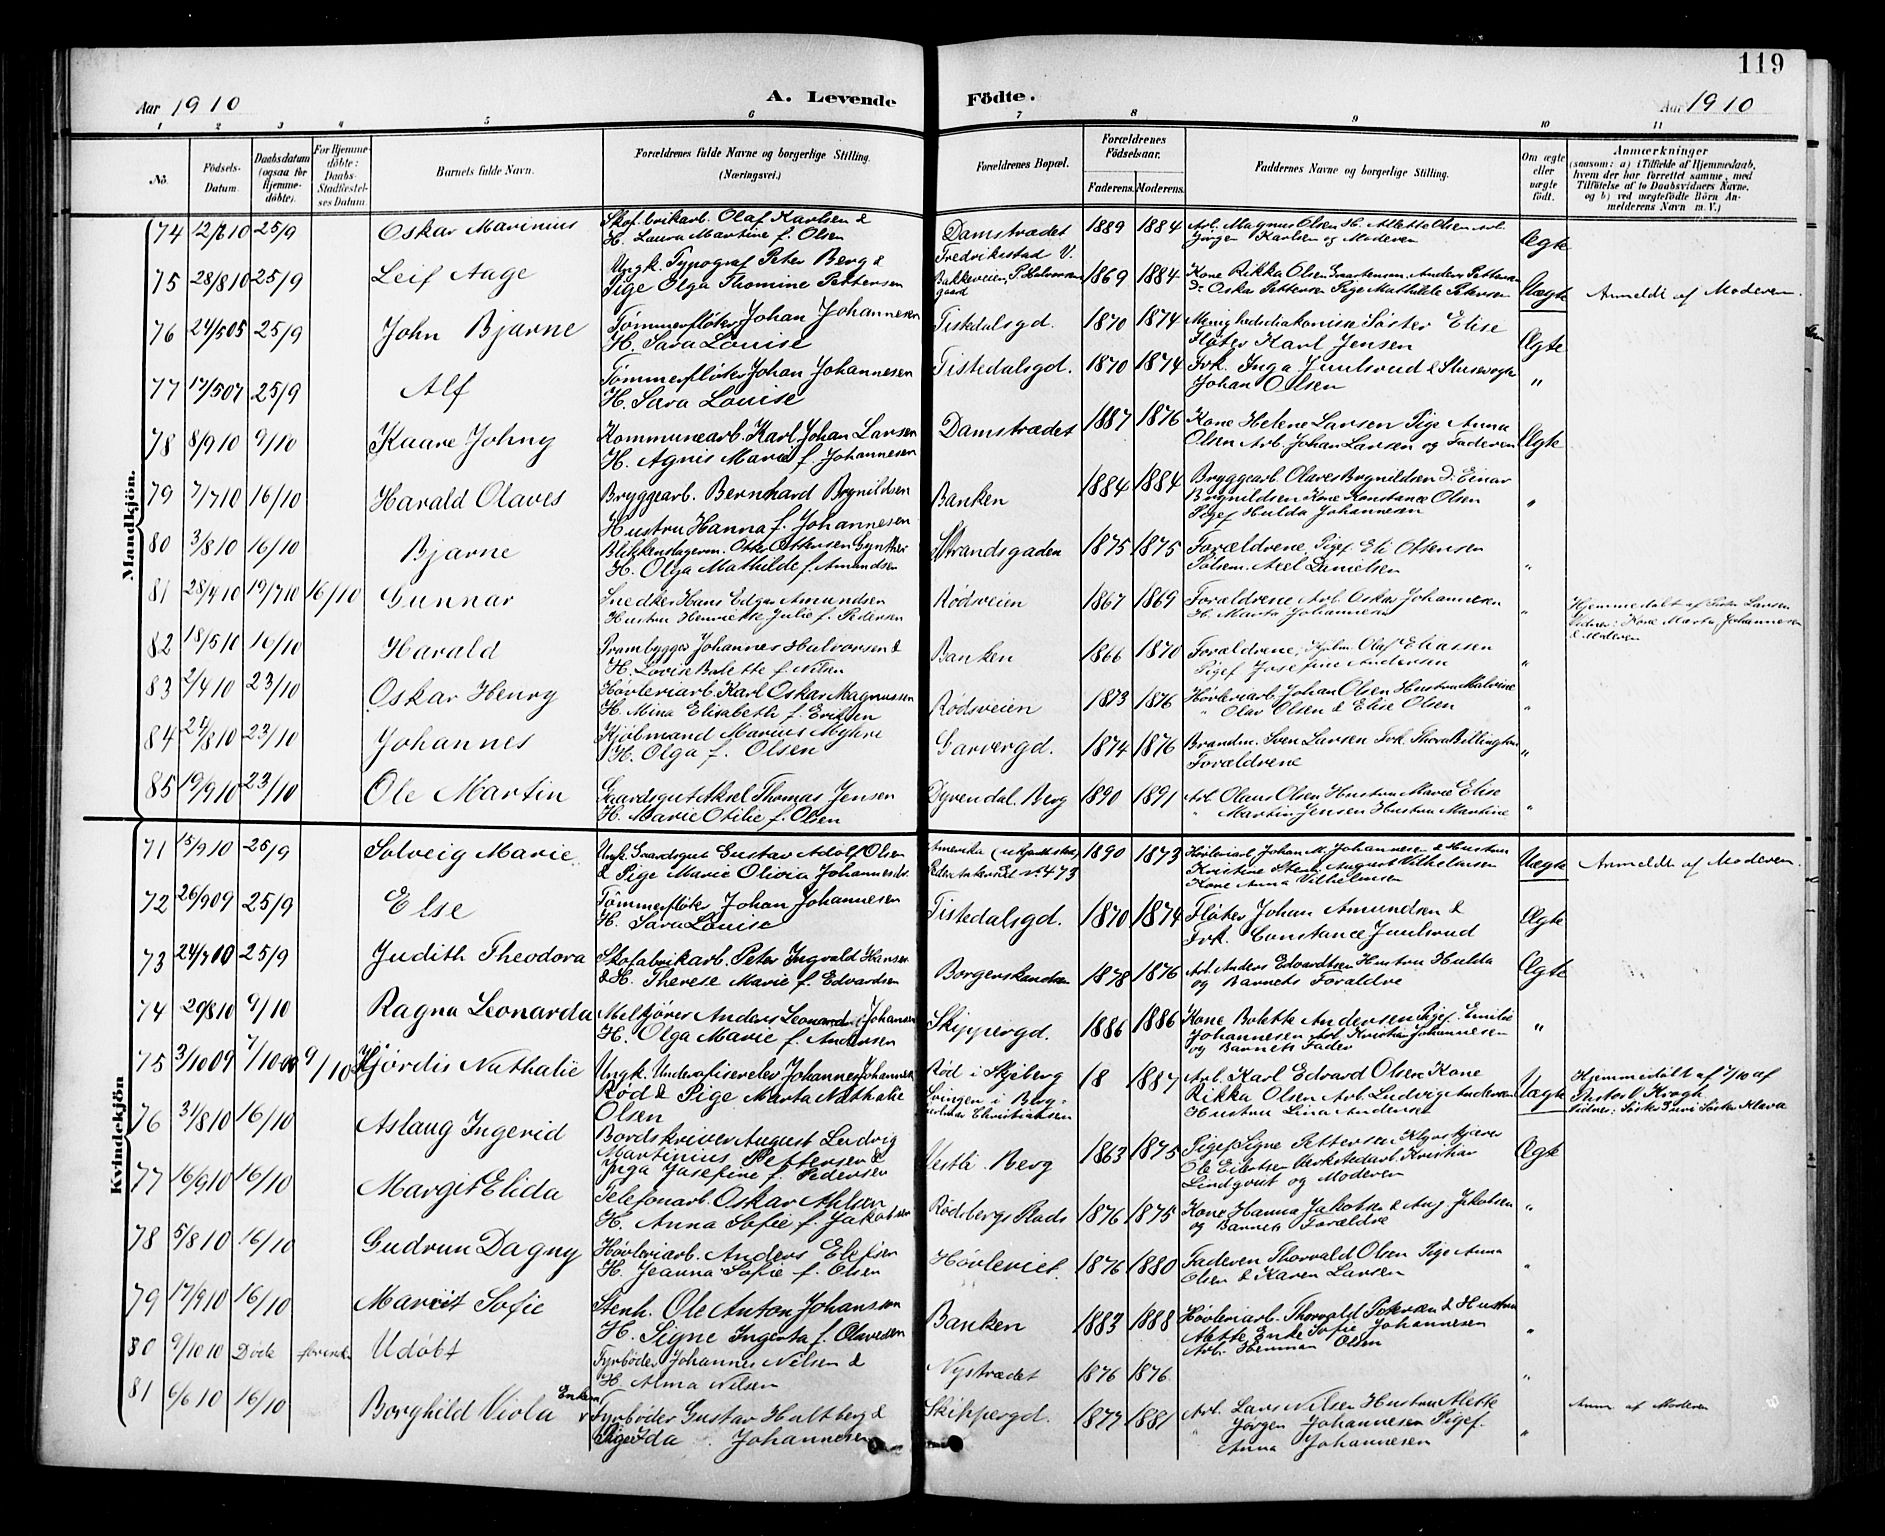 119
Aar 1910 A. Levende Födte. Aar 1910
1 2 3 4 5 6 7 8 9 10 11
No. Födsels-Datum. Daabsdatum (ogsaa for Hjemmedöbte). For Hjemmedöbte: Daabs-Stadfæstelses Datum Barnets fulde Navn. Forældrenes fulde Navne og borgerlige Stilling. (Næringsvei.) Forældrenes Bopæl. Forældrenes Födselsaar. Faderens. Moderens. Faddernes Navne og borgerlige Stilling. Om ægte eller uægte födt. Anmærkninger (saasom: a) i Tilfælde af Hjemmedaab, hvem der har forrettet samme, med Tilföielse af to Daabsvidners Navne, og b) ved uægtefödte Börn Anmelderens Navn m. V.)
Mandkjön.
74 12/8 10 25/9 Oskar Marinius Skofabrikarb. Olaf Karlsen & Damstrædet 1889 1884 Arb. Magnus Olsen H. Alette Olsen Arb.
H. Laura Martine f. Olsen Jörgen Karlsen og Moderen Ægte
75 28/8 10 25/9 Leif Aage Ungk. Typograf Peter Berg & Fredrikstad V. 1869 1884 Kone Rikka Olsen Anders Pettersen
Pige Olga Thomine Pettersen Bakkeveien, P. Halvorsens gaard D: Oskar Pettersen Pige Mathilde Petersen Uægte Anmeldt af Moderen.
76 24/5 05 25/9 John Bjarne Tømmerfløter Johan Johannesen Tistedalsgd. 1870 1874 Menighedsdiakonisse Søster Elise
H. Sara Louise Fløter Karl Jensen Ægte
77 17/5 07 25/9 Alf Tømmerfløter Johan Johannesen Tistedalsgd. 1870 1874 Frk. Inga Juulsrud & Slusevogter
H. Sara Louise Johan Olsen "
78 8/9 10 9/10 Kaare Johny Kommunearb. Karl Johan Larsen Damstrædet 1887 1876 Kone Helene Larsen Pige Anna
H. Agnis Marie f. Johannesen Olsen Arb. Johan Larsen og Faderen Ægte
79 7/7 10 16/10 Harald Olaves Bryggearb. Bernhard Brynildsen Banken 1884 1884 Bryggearb. Olaves Brynildsen D: Einar
Hustru Hanna f. Johannesen Brynildsen Kone Konstance Olsen
Pigef. Hulda Johannesen "
80 3/8 10 16/10 Bjarne Blikkenslagerm. Otto Ottersen Gynther Strandsgaden 1875 1875 Forældrene, Pigef. Eli Ottersen
H. Olga Mathilde f. Amundsen Pølsem. Axel Danielsen "
81 28/4 10 19/7 10 16/10 Gunnar Snedker Hans Edgar Amundsen Rødsveien 1867 1869 Forældrene Arb. Oskar Johannesen
Hustru Henriette Julie f. Pedersen H. Marta Johannesen " Hjemmedøbt af Søster Larsen Vidner: Kone Marta Johannesen & Moderen
82 18/5 10 16/10 Harald Prambygger Johannes Halvorsen & Banken 1866 1870 Forældrene, Olaf Eliassen
H. Lovise Bolette f. Nilsen Pigef. Josefine Andersen "
83 2/4 10 23/10 Oskar Henry Høvleriarb. Karl Oskar Magnussen Rødsveien 1873 1876 Høvleriarb. Johan Olsen Hustru Malvine
H. Mina Elisabeth f. Eriksen " Olav Olsen & Elise Olsen "
84 24/8 10 23/10 Johannes Kjøbmand Marius Myhre Garvergd. 1874 1876 Brandm. Sven Larsen Frk. Thora Billington
H. Olga f. Olsen Forældrene "
85 19/9 10 23/10 Ole Martin Gaardsgut Aksel Thomas Jensen Dyrendal. Berg 1890 1891 Arb. Olaus Olsen Hustru Marie Elise
H. Marie Otilie f. Olsen " Martin Jensen Hustru Martine "
Kvindekjön
71 15/9 10 25/9 Solveig Marie Ungk. Gaardsgut Gustav Adolf Olsen Amerika (ukjendt sted) 1890 1873 Høvleriarb. Johan M. Johannesen & Hustru
& Pige Marie Olivia Johannesdr. No 473 Kristine Stenh. August Vilhelmsen
Kone Anna Vilhelmsen Uægte Anmeldt af Moderen.
72 26/9 09 25/9 Else Tømmerfløter Johan Johannesen Tistedalsgd. 1870 1874 Fløter Johan Amundsen &
H. Sara Louise Frk. Constance Juulsrud Ægte
73 24/7 00 25/9 Judith Theodora Skofabrikarb. Peter Ingvald Hansen Borgerskandsen 1878 1876 Arb. Anders Edvardsen Hustru Hulda
& H. Therese Marie f. Edvardsen og Barnets Forældre Ægte
74 20/8 10 9/10 Ragna Leonarda Melkjører Anders Leonard Johansen Skippergd. 1886 1886 Kone Bolette Andersen Pigef. Emilie
H. Olga Marie f. Andersen Johannesen Arb. Kristian Johannesen
og Barnets Fader "
75 3/10 09 7/10 09 9/10 Hjørdis Nathalie Ungk. Underofiserelev Johannes Johannesen Rød i Skjeberg 18 1887 Arb. Karl Edvard Olsen Kone
Rød & Pige Marta Nathalie Svingen i Berg Rikka Olsen Arb. Ludvig Andersen
Olsen Christiansen Hustru Lina Andersen Uægte Hjemmedøbt af 7/10 af Pastor Krogh Vidner: Søster Guri Søster Klara
76 31/8 10 16/10 Aslaug Ingerid Bordskriver August Ludvig Vestli. Berg 1863 1875 Pigef. Signe Pettersen
Martinius Pettersen & Ole Eilertsen Verkstedarb. Kristian
Inga Josefine f. Pedersen Lindqvist og Moderen Ægte
77 16/9 10 16/10 Margit Elida Telefonarb. Oskar Nilsen Rødsbergs Plads 1876 1875 Kone Hanna Jakobsen & Aug. Jakobsen
H. Anna Sofie f. Jakobsen og Barnets Forældre "
78 5/8 10 16/10 Gudrun Dagny Høvleriarb. Anders Elefsen Høvleriet 1876 1880 Faderen Thorvald Olsen Pige Anna
H. Jeanna Sofie f. Olsen Olsen & Karen Larsen "
79 17/9 10 16/10 Marit Sofie Stenh. Ole Anton Johansson Banken 1883 1888 Høvleriarb. Thorvald Petersen & Hustru
H. Signe Ingerta f. Olavesen Alette Enke Sofie Johannesen
Arb. Herman Olsen "
80 9/10 10 Døde Udøbt Fyrbøder Johannes Nilsen & Nystrædet 1876 1876
H. Alma Nilsen "
81 6/6 10 16/10 Borghild Viola Enkem. Fyrbøder Gustav Hultberg & Skippergd. 1877 1881 Arb. Lars Nilsen Hustru Alette
Pige Ida Johannesen " Jørgen Johannesen Pigef.
Anna Johannesen " Anm. af Moderen